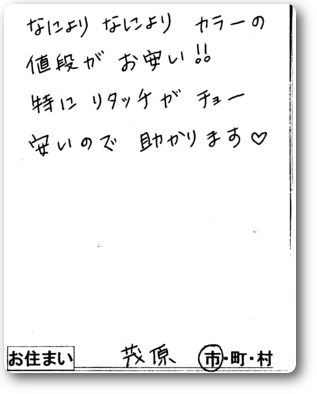 なにより なにより カラーの
値段が お安い!!
特に リタッチが チョー
安いので 助かります♡
お住まい 茂原 市・町・村